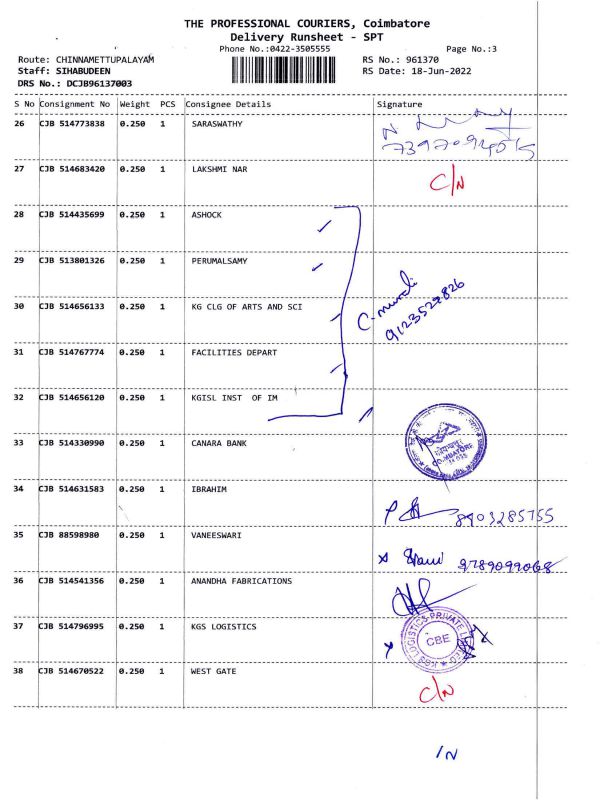 THE PROFESSIONAL COURIERS, Coimbatore
Delivery Runsheet - SPT
Phone No.:0422-3505555 Page No.:3
Route: CHINNAMETTUPALAYAM RS No.: 961370
Staff: SIHABUDEEN RS Date: 18-Jun-2022
DRS No.: DCJB96137003
S No Consignment No Weight PCS Consignee Details Signature
26 CJB 514773838 0.250 1 SARASWATHY
27 CJB 514683420 0.250 1 LAKSHMI NAR C/N
28 CJB 514435699 0.250 1 ASHOCK
29 CJB 513801326 0.250 1 PERUMALSAMY
30 CJB 514656133 0.250 1 KG CLG OF ARTS AND SCI C-murali
9123527826
31 CJB 514767774 0.250 1 FACILITIES DEPART
32 CJB 514656120 0.250 1 KGISL INST OF IM
33 CJB 514330990 0.250 1 CANARA BANK COIMBATORE
34 CJB 514631583 0.250 1 IBRAHIM 8903285755
35 CJB 88598980 0.250 1 VANEESWARI 9789099068
36 CJB 514541356 0.250 1 ANANDHA FABRICATIONS
37 CJB 514796995 0.250 1 KGS LOGISTICS KGS LOGISTICS PRIVATE LIMITED CBE
38 CJB 514670522 0.250 1 WEST GATE C/N
IN